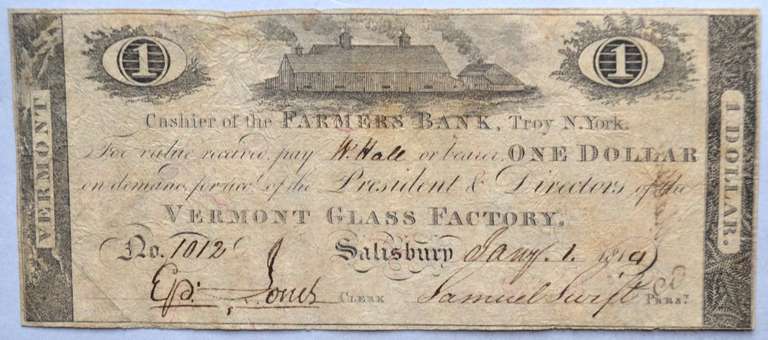 1
1
VERMONT
1 DOLLAR.
Cashier of the FARMERS BANK, Troy N.York.
For value received, pay W. Hall or bearer, ONE DOLLAR
on demand, for acct. of the President & Directors of the
VERMONT GLASS FACTORY.
No. 1012 Salisbury Jany. 1. 1814
Ep. Jones CLERK Samuel Swift PREST